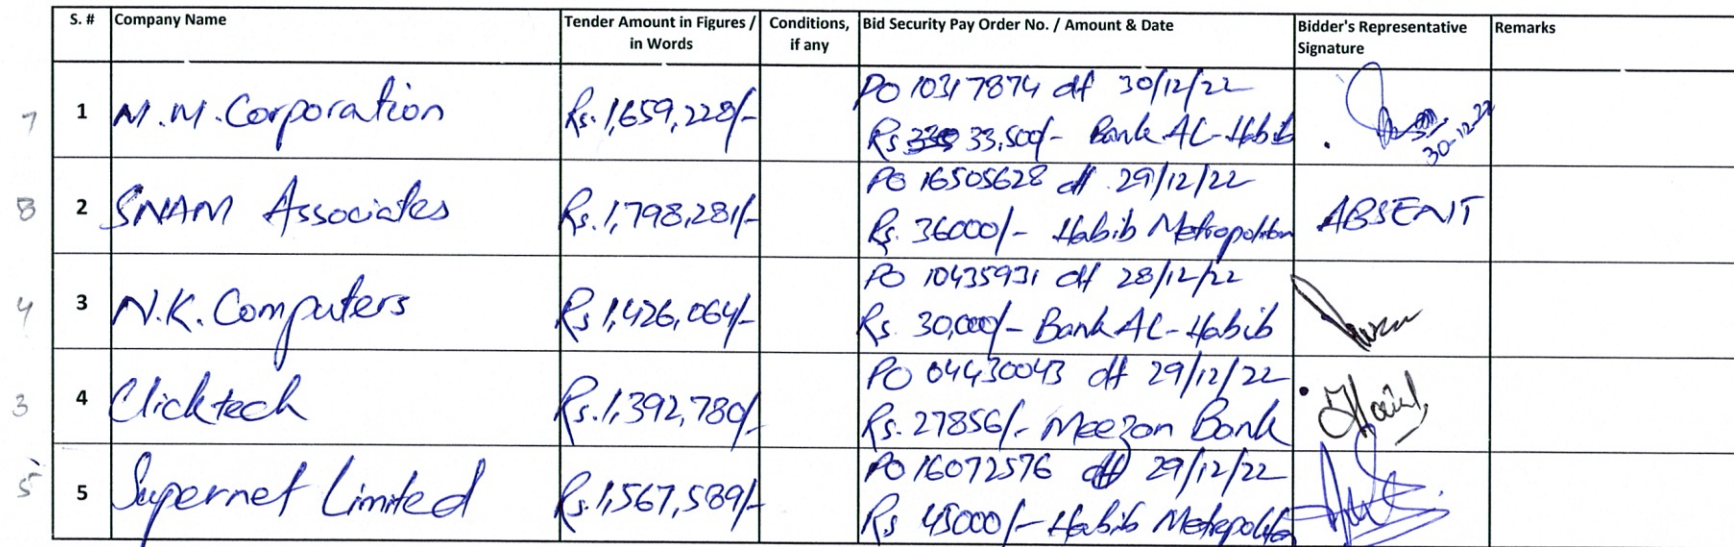 S. # Company Name Tender Amount in Figures / in Words Conditions, if any Bid Security Pay Order No. / Amount & Date Bidder's Representative Signature Remarks
7 1 M.M. Corporation Rs. 1,659,228/- PO 10317874 dt 30/12/22
Rs 33,500/- Bank AL-Habib 30-12-22
8 2 SNAM Associates Rs. 1,798,281/- PO 16505628 dt 29/12/22
Rs. 36000/- Habib Metropolitan ABSENT
4 3 N.K. Computers Rs 1,426,064/- PO 10435931 dt 28/12/22
Rs. 30,000/- Bank AL-Habib
3 4 Clicktech Rs. 1,392,780/- PO 04430043 dt 29/12/22
Rs. 27856/- Meezon Bank
5 5 Supernet Limited Rs. 1,567,589/- PO 16072576 dt 29/12/22
Rs 45000/- Habib Metropolitan